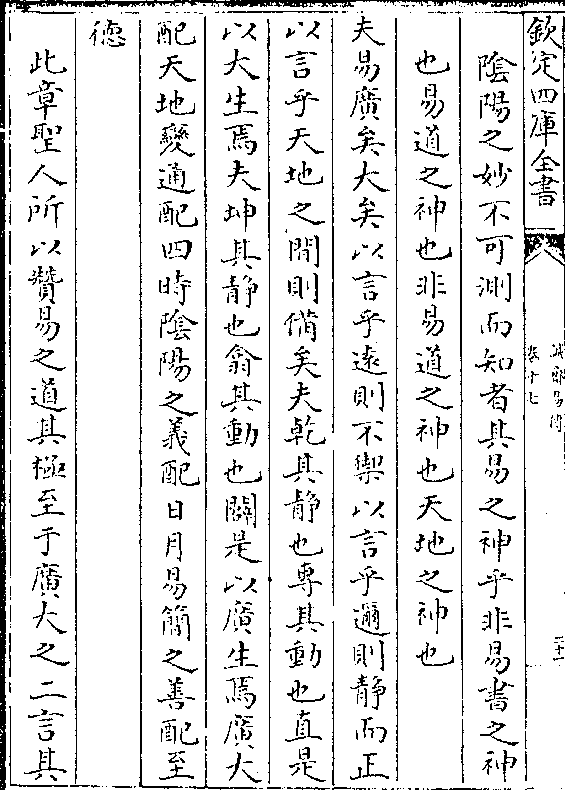 欽定四庫全書
誠齋易傳
卷十七
二十一
陰陽之妙不可測而知者其易之神乎非易書之神
也易道之神也非易道之神也天地之神也
夫易廣矣大矣以言乎遠則不禦以言乎邇則静而正
以言乎天地之間則備矣夫乾其静也專其動也直是
以大生焉夫坤其静也翕其動也闢是以廣生焉廣大
配天地變通配四時陰陽之義配日月易簡之善配至
德
此章聖人所以贊易之道其極至于廣大之二言其